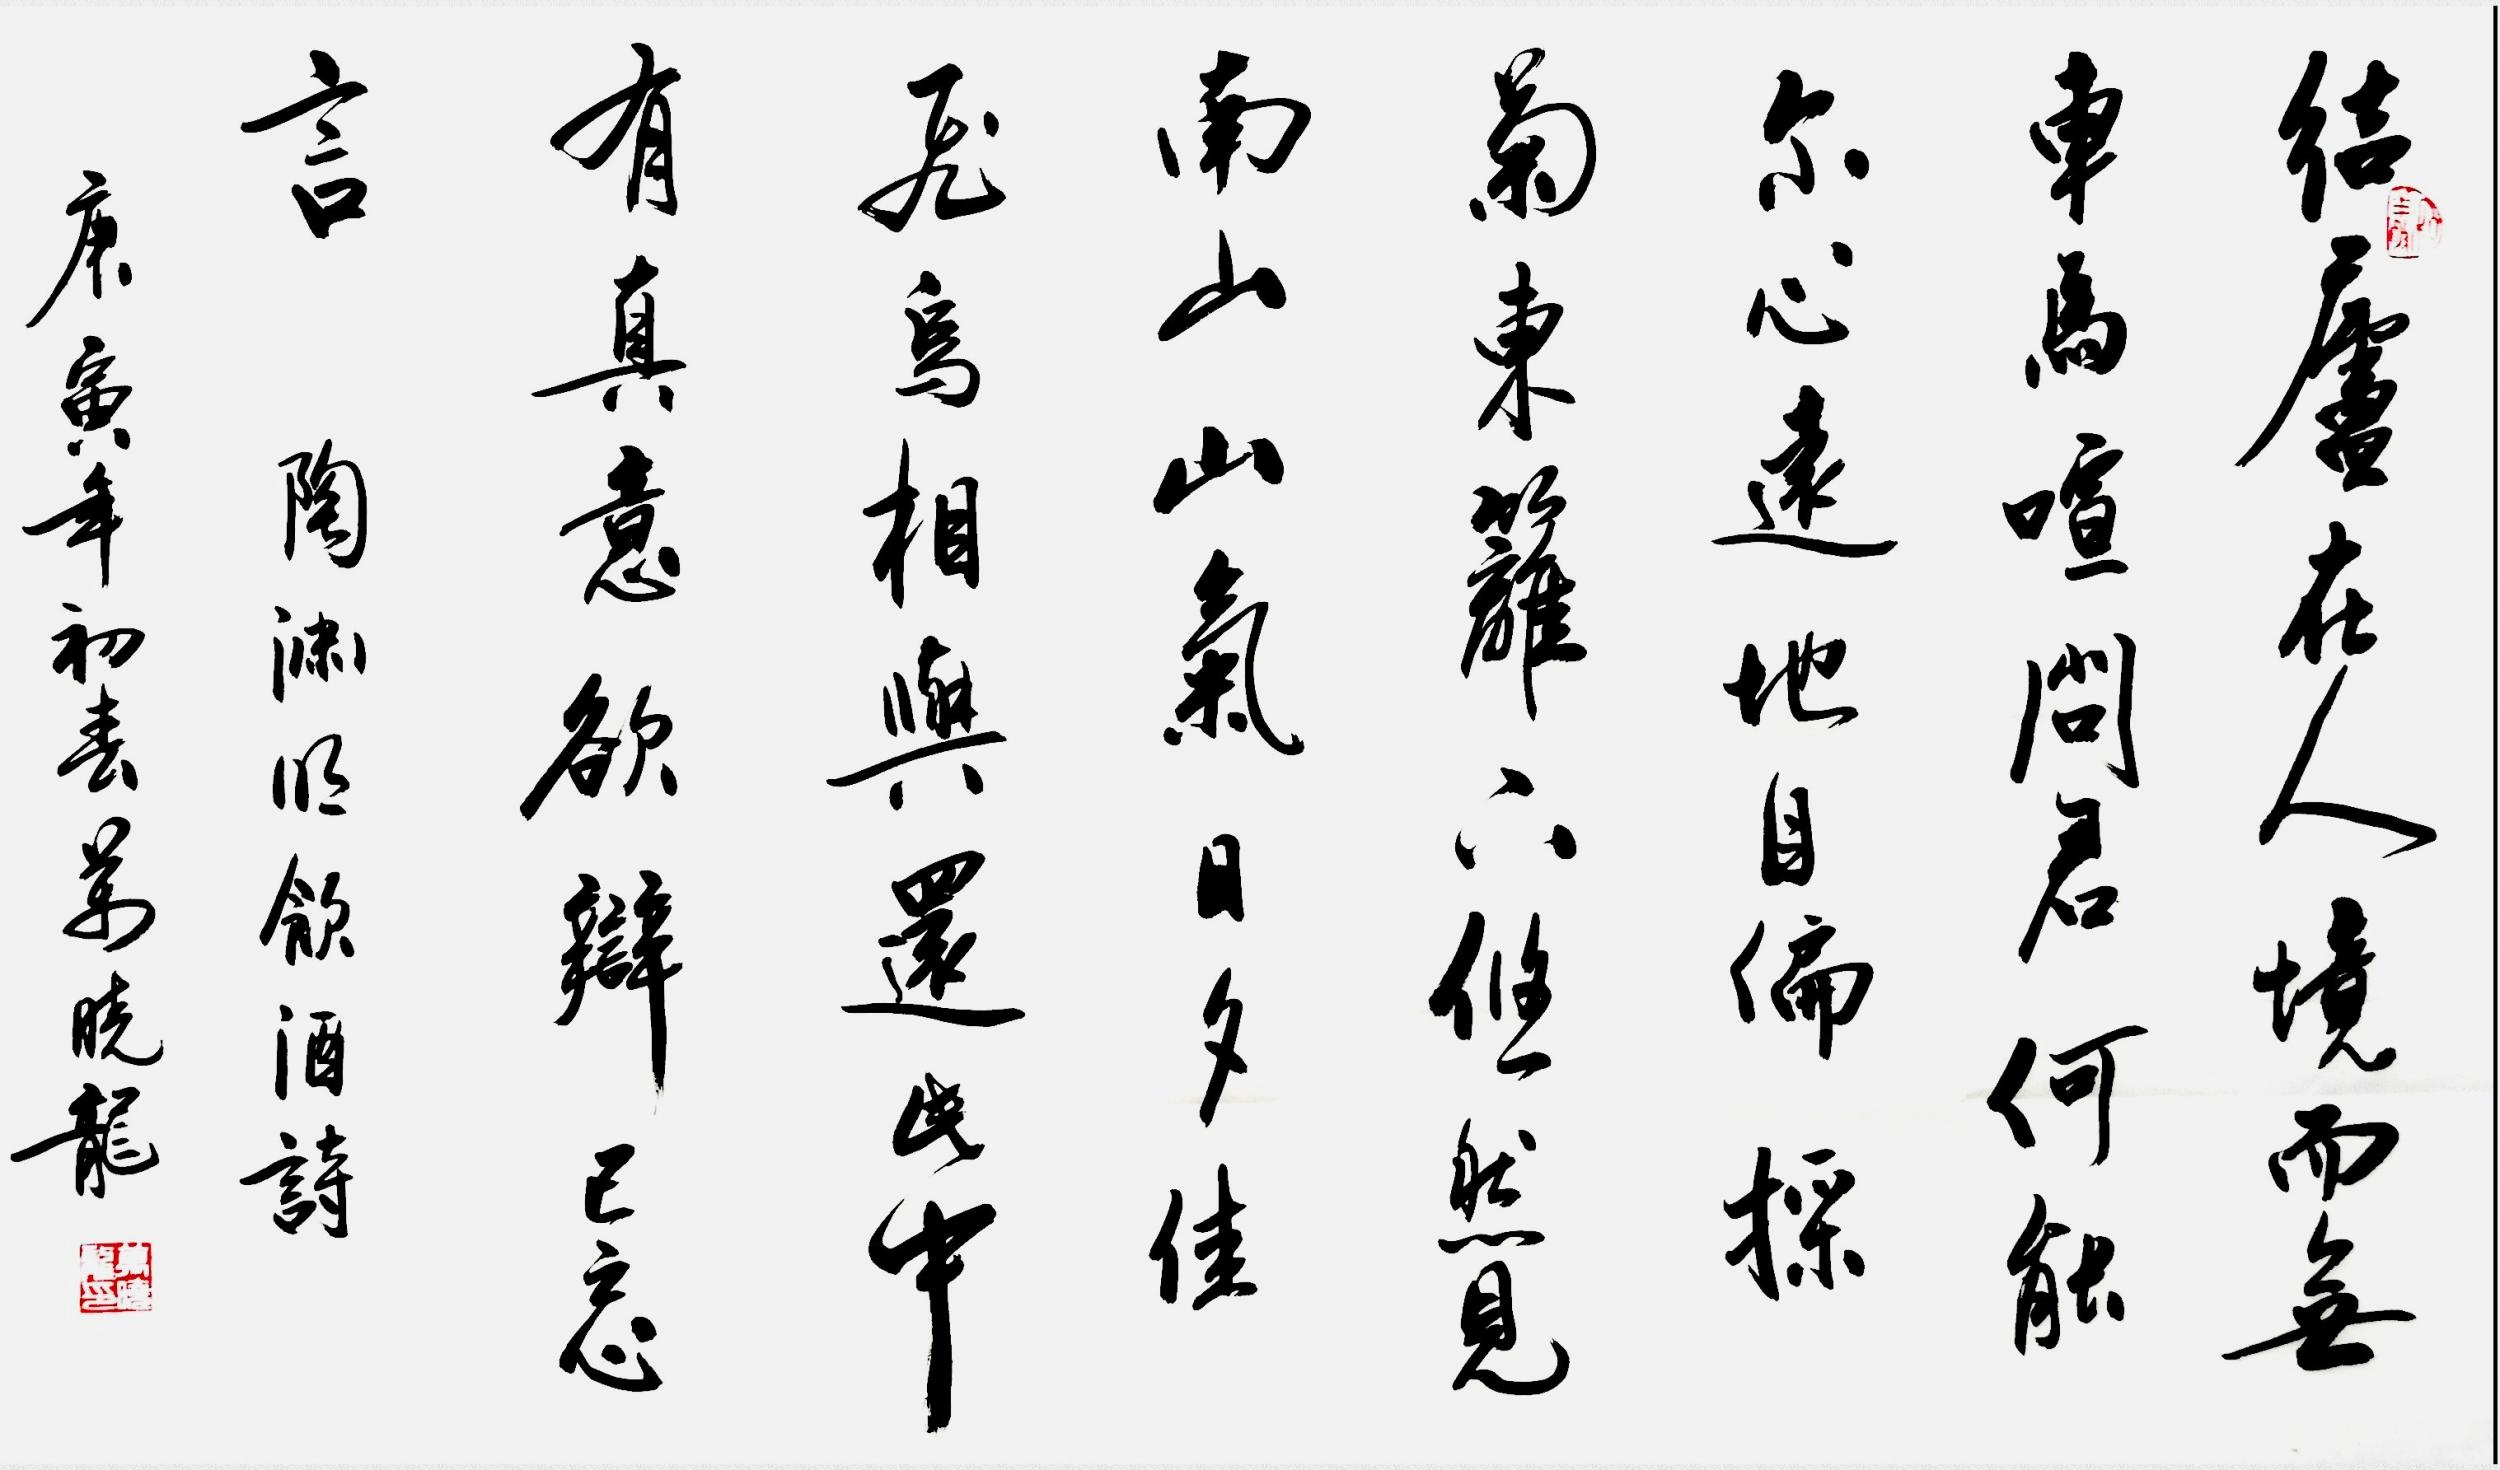 結廬在人境而無
車馬喧問君何能
尔心遠地自偏採
菊東籬下悠然見
南山山氣日夕佳
飛鳥相與還此中
有真意欲辯已忘
言 陶淵明飲酒詩
庚寅年初春萬晓龍